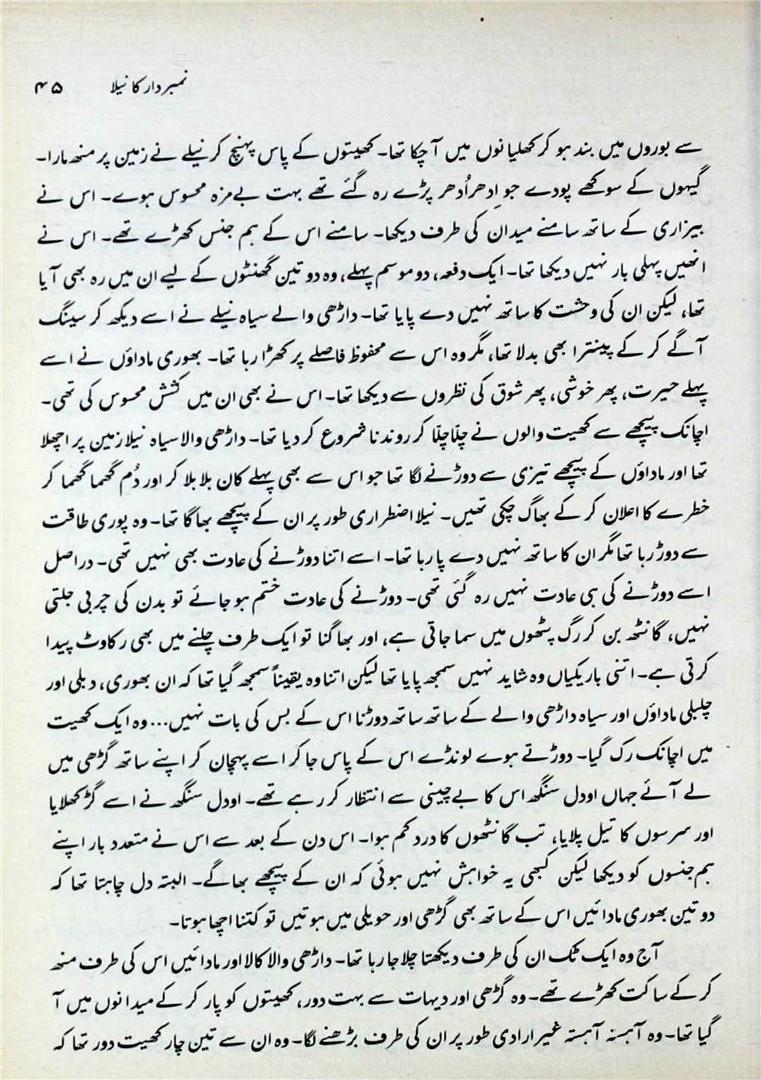 نمبردار کا نیلا ۴۵
سے بوروں میں بند ہو کر کھلیانوں میں آ چکا تھا۔ کھیتوں کے پاس پہنچ کر نیلے نے زمین پر منھ مارا۔
گیہوں کے سوکھے پودے جو اِدھر اُدھر پڑے رہ گئے تھے بہت بے مزہ محسوس ہوے۔ اس نے
بیزاری کے ساتھ سامنے میدان کی طرف دیکھا۔ سامنے اس کے ہم جنس کھڑے تھے۔ اس نے
انھیں پہلی بار نہیں دیکھا تھا۔ ایک دفعہ، دو موسم پہلے، وہ دو تین گھنٹوں کے لیے ان میں رہ بھی آیا
تھا، لیکن اِن کی وحشت کا ساتھ نہیں دے پایا تھا۔ داڑھی والے سیاہ نیلے نے اسے دیکھ کر سینگ
آگے کر کے پینترا بھی بدلا تھا، مگر وہ اس سے محفوظ فاصلے پر کھڑا رہا تھا۔ بھوری ماداؤں نے اسے
پہلے حیرت، پھر خوشی، پھر شوق کی نظروں سے دیکھا تھا۔ اس نے بھی ان میں کشش محسوس کی تھی۔
اچانک پیچھے سے کھیت والوں نے چلّا چلّا کر روندنا شروع کر دیا تھا۔ داڑھی والا سیاہ نیلا زمین پر اچھلا
تھا اور ماداؤں کے پیچھے تیزی سے دوڑنے لگا تھا جو اس سے بھی پہلے کان ہلا ہلا کر اور دُم گھما گھما کر
خطرے کا اعلان کر کے بھاگ چکی تھیں۔ نیلا اضطراری طور پر ان کے پیچھے بھاگا تھا۔ وہ پوری طاقت
سے دوڑ رہا تھا مگر ان کا ساتھ نہیں دے پا رہا تھا۔ اسے اتنا دوڑنے کی عادت بھی نہیں تھی۔ دراصل
اسے دوڑنے کی ہی عادت نہیں رہ گئی تھی۔ دوڑنے کی عادت ختم ہو جائے تو بدن کی چربی جلتی
نہیں، گانٹھ بن کر رگ پٹھوں میں سما جاتی ہے، اور بھاگنا تو ایک طرف چلنے میں بھی رکاوٹ پیدا
کرتی ہے۔ اتنی باریکیاں وہ شاید نہیں سمجھ پایا تھا لیکن اتنا وہ یقیناً سمجھ گیا تھا کہ ان بھوری، دبلی اور
چلبلی ماداؤں اور سیاہ داڑھی والے کے ساتھ ساتھ دوڑنا اس کے بس کی بات نہیں... وہ ایک کھیت
میں اچانک رک گیا۔ دوڑتے ہوے لونڈے اس کے پاس جا کر اسے پہچان کر اپنے ساتھ گڑھی میں
لے آئے جہاں اودل سنگھ اس کا بے چینی سے انتظار کر رہے تھے۔ اودل سنگھ نے اسے گڑ کھلایا
اور سرسوں کا تیل پلایا، تب گانٹھوں کا درد کم ہوا۔ اس دن کے بعد سے اس نے متعدد بار اپنے
ہم جنسوں کو دیکھا لیکن کبھی یہ خواہش نہیں ہوئی کہ ان کے پیچھے بھاگے۔ البتہ دل چاہتا تھا کہ
دو تین بھوری مادائیں اس کے ساتھ بھی گڑھی اور حویلی میں ہوتیں تو کتنا اچھا ہوتا۔
آج وہ ایک ٹک ان کی طرف دیکھتا چلا جا رہا تھا۔ داڑھی والا کالا اور مادائیں اس کی طرف منھ
کر کے ساکت کھڑے تھے۔ وہ گڑھی اور دیہات سے بہت دور، کھیتوں کو پار کر کے میدانوں میں آ
گیا تھا۔ وہ آہستہ آہستہ غیر ارادی طور پر ان کی طرف بڑھنے لگا۔ وہ ان سے تین چار کھیت دور تھا کہ